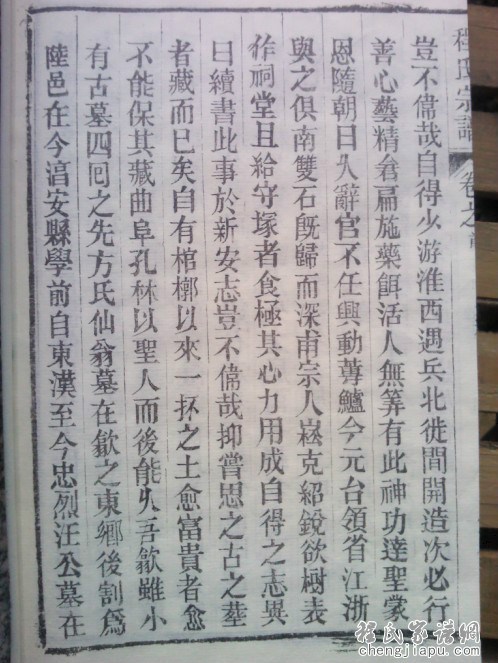 程氏宗譜 卷之
豈不偉哉自得少游淮西遇兵北徙間開造次必行
善心藝精倉扁施藥餌活人無筭有此神功達聖裳
恩隨朝日久辭官不任興動蓴鱸今元台領省江浙
與之俱南雙石旣歸而深甫宗人嶷克紹銳欲樹表
作祠堂且給守塚者食極其心力用成自得之志異
日續書此事於新安志豈不偉哉抑嘗思之古之塟
者藏而巳矣自有棺槨以來一抔之土愈富貴者愈
不能保其藏曲阜孔林以聖人而後能久吾歙雖小
有古墓四囘之先方氏仙翁墓在歙之東鄉後割爲
陸邑在今淯安縣學前自東漢至今忠烈汪公墓在
程氏家譜網
chengjiapu.com